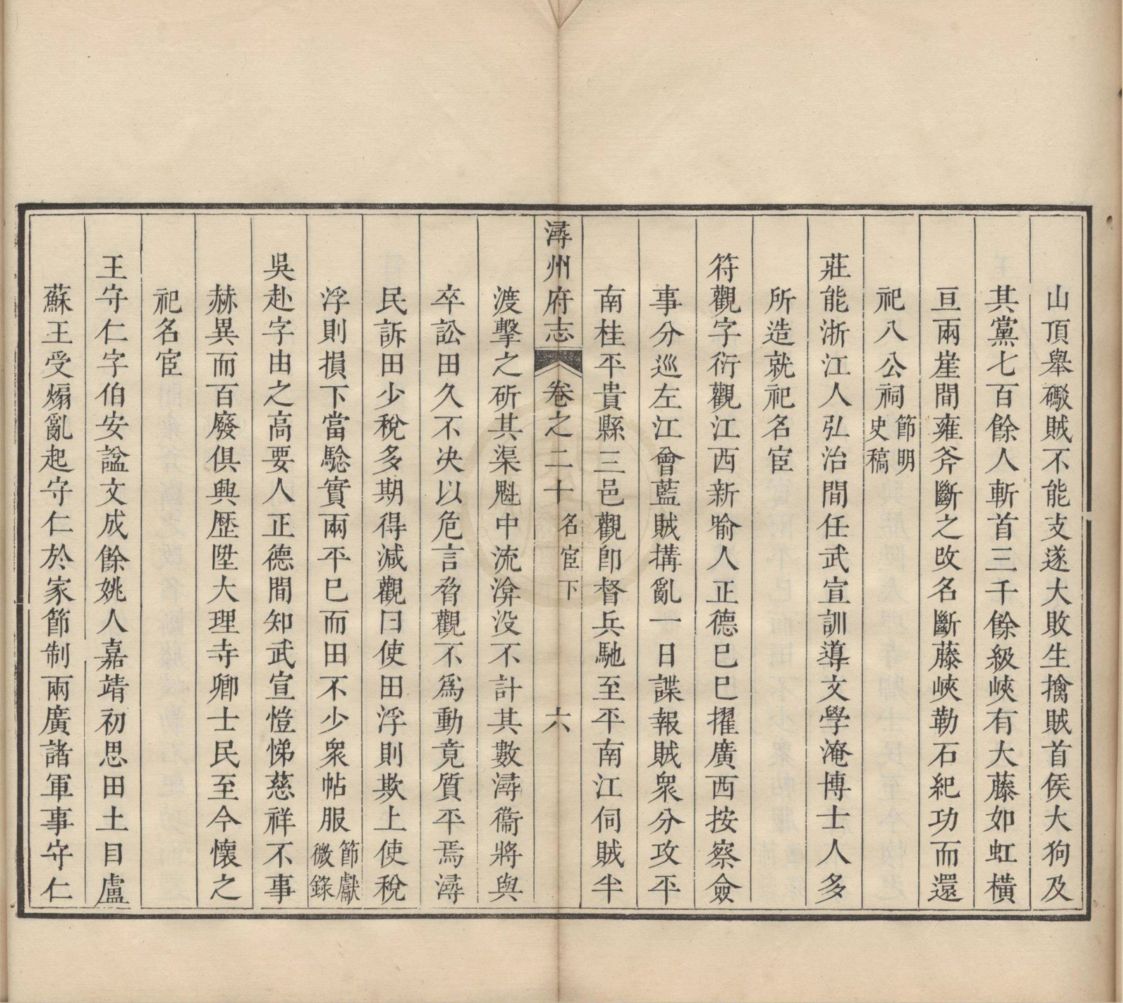 山頂舉礮賊不能支遂大敗生擒賊首侯大狗及
其黨七百餘人斬首三千餘級峽有大藤如虹橫
亘兩崖間雍斧斷之改名斷藤峽勒石紀功而還
祀八公祠節明史稿
莊能浙江人弘治間任武宣訓導文學淹博士人多
所造就祀名宦
符觀字衍觀江西新喻人正德巳巳擢廣西按察僉
事分巡左江會藍賊搆亂一日諜報賊衆分攻平
南桂平貴縣三邑觀卽督兵馳至平南江伺賊半
潯州府志 卷之二十 名宦下 六
渡擊之斫其渠魁中流渰没不計其數潯衞將與
卒訟田久不决以危言脅觀不爲動竟質平焉潯
民訴田少稅多期得減觀曰使田浮則欺上使稅
浮則損下當驗實兩平巳而田不少衆帖服節獻徵錄
吳赴字由之高要人正德間知武宣愷悌慈祥不事
赫異而百廢俱興歷陞大理寺卿士民至今懷之
祀名宦
王守仁字伯安諡文成餘姚人嘉靖初思田土目盧
蘇王受煽亂起守仁於家節制兩廣諸軍事守仁